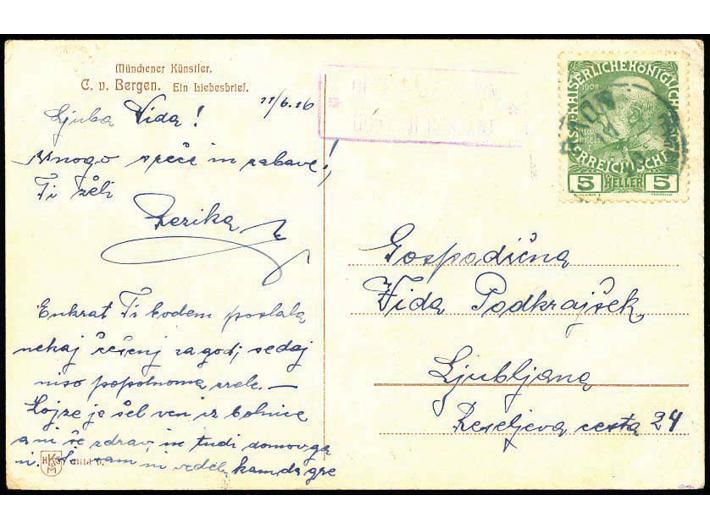 Münchener Künstler.
C. v. Bergen. Ein Liebesbrief.
11/6.16
Ljuba Vida!
Mnogo sreče in zabave!
Ti želi
Zerika
Enkrat Ti bodem poslala
nekaj češenj zagodi; sedaj
niso popolnoma zrele.—
Lojze je šel ven iz bolnice
a ni še zdrav, in tudi domov ga
n. vem in vedeli kam da gre
KAISERLICHE KÖNIGLICHE
ÖSTERREICHISCHE
5 HELLER 5
Gospodična
Vida Podkrajšek
Ljubljana
Resljeva cesta 24